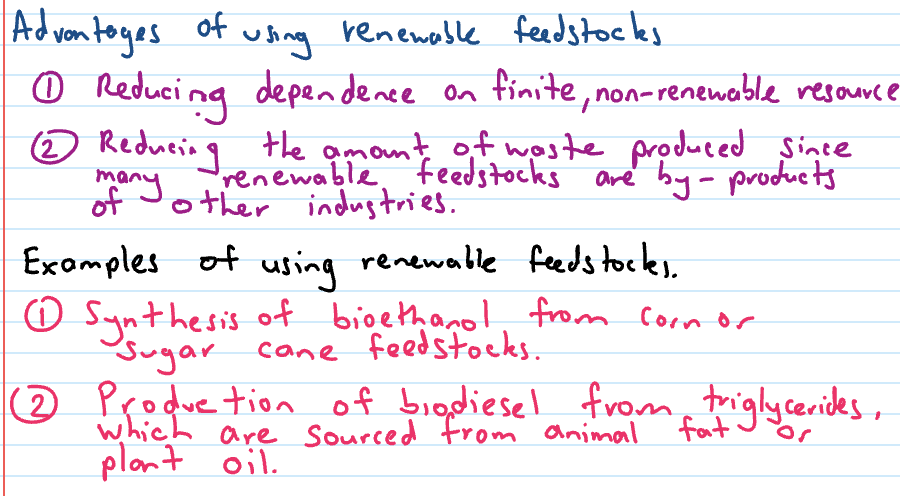 Advantages of using renewable feedstocks
① Reducing dependence on finite, non-renewable resource
② Reducing the amount of waste produced since
many renewable feedstocks are by-products
of other industries.
Examples of using renewable feedstocks.
① Synthesis of bioethanol from corn or
sugar cane feedstocks.
② Production of biodiesel from triglycerides,
which are sourced from animal fat or
plant oil.